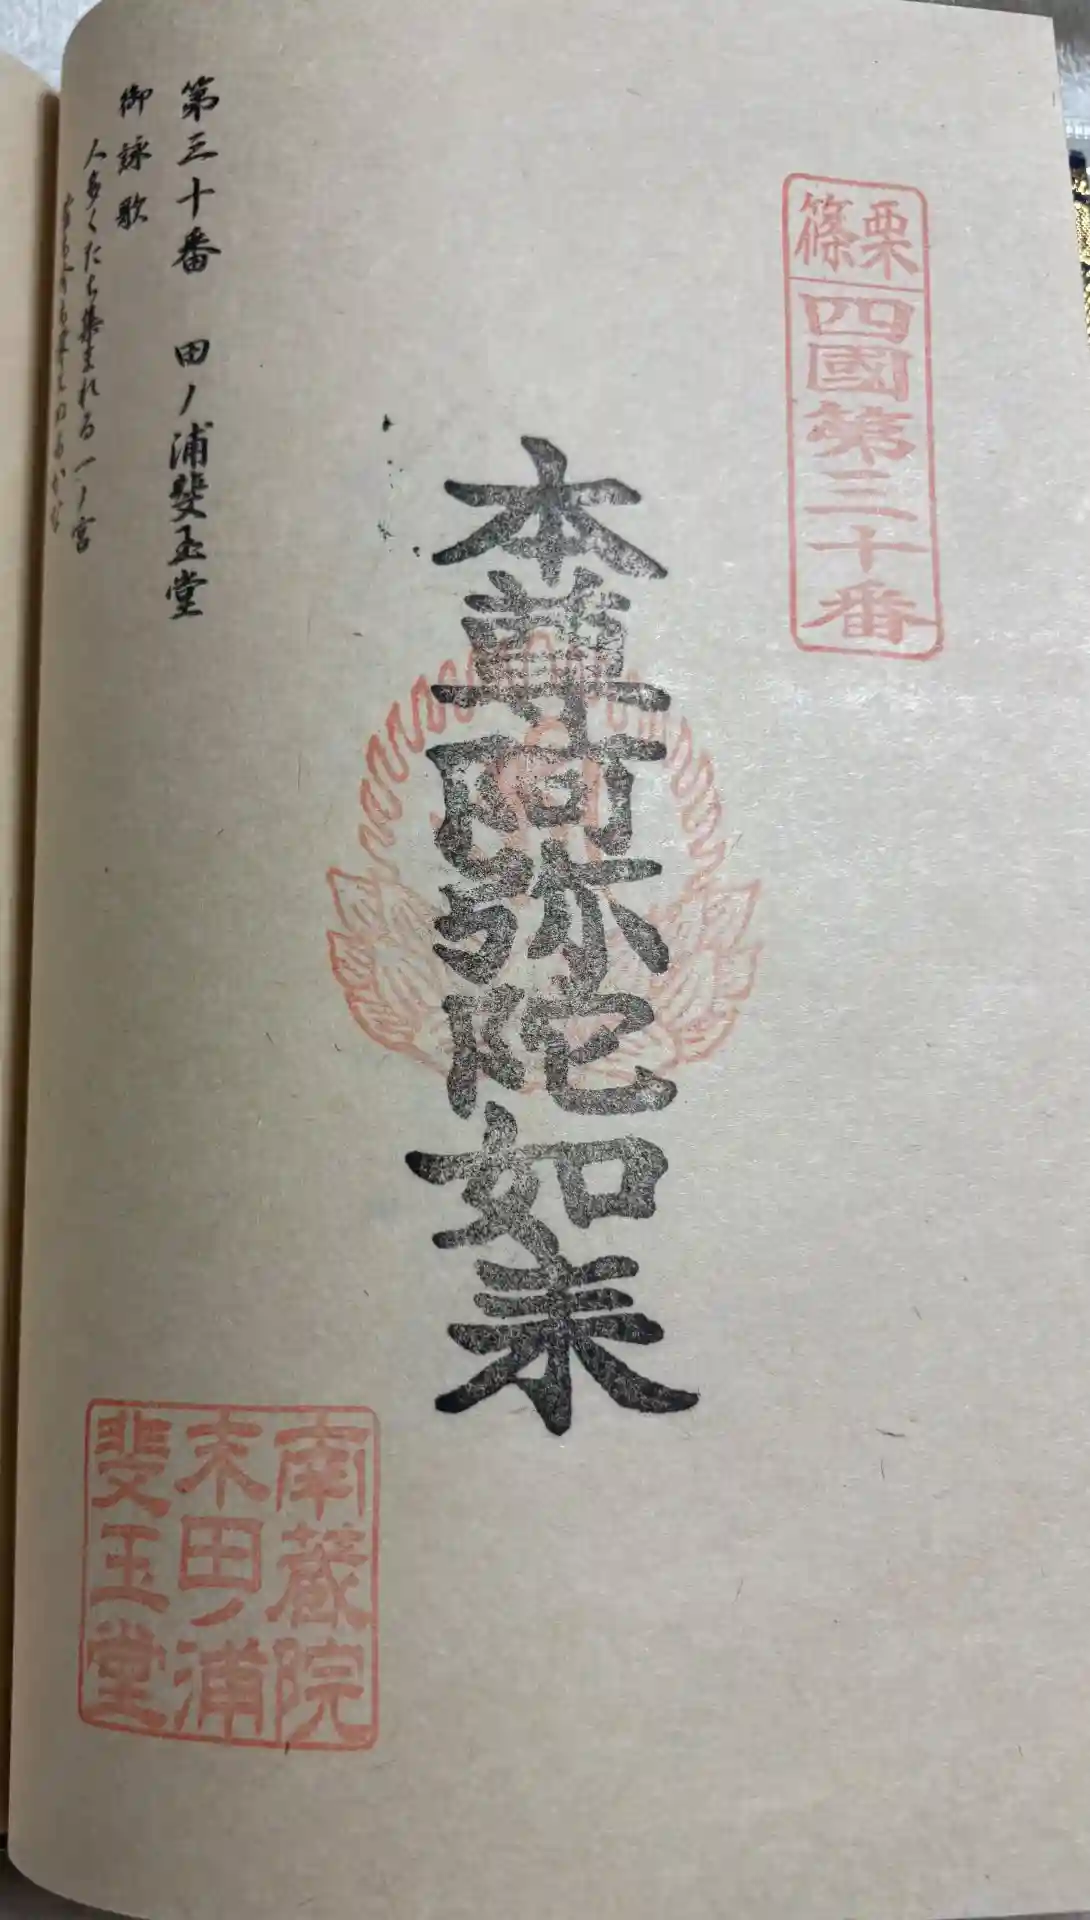 篠栗
四國第三十番
本尊阿弥陀如来
第三十番 田ノ浦斐玉堂
御詠歌
人多くたち集まれる一ノ宮
南蔵院
末田ノ浦
斐玉堂